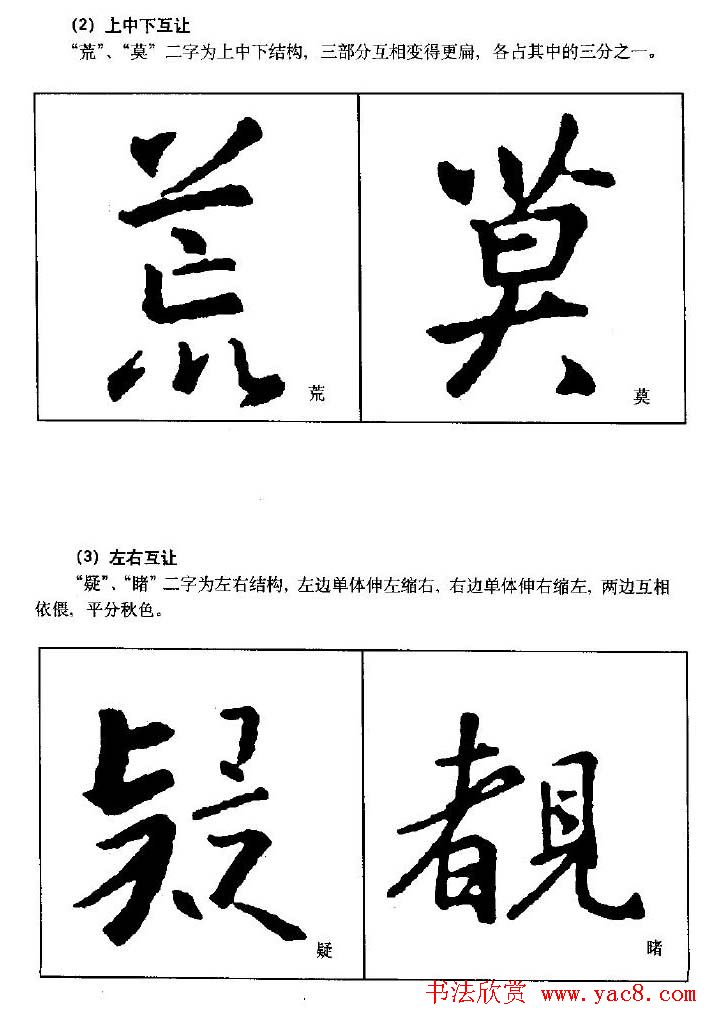 (2) 上中下互让
“荒”、“莫” 二字为上中下结构，三部分互相变得更扁，各占其中的三分之一。
荒 莫
荒 莫
(3) 左右互让
“疑”、“睹” 二字为左右结构，左边单体伸左缩右，右边单体伸右缩左，两边互相
依偎，平分秋色。
疑 覩
疑 睹
书法欣赏 www.yac8.com